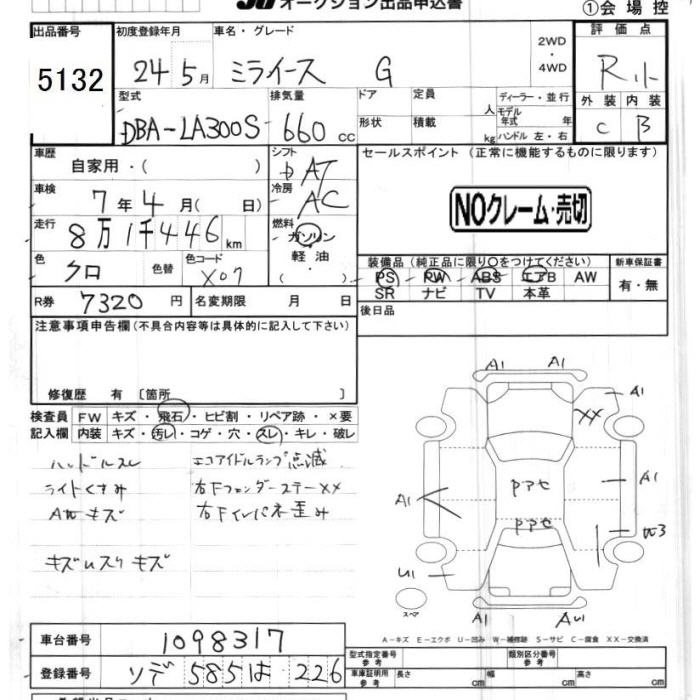 オークション出品申込書
①会場控
出品番号
5132
初度登録年月
車名・グレード
24 5月
ミライース G
2WD
・
4WD
評価点
R小
外装 内装
C B
型式
DBA-LA300S
排気量
660 cc
ドア
形状
定員
人
積載
kg
ディーラー・並行
モデル
年式 年
ハンドル 左・右
車歴
自家用・( )
シフト
AT
車検
7年4月( 日)
冷房
AC
走行
8万1千446km
燃料
ガソリン
・
軽油
・
( )
色
クロ
色替
色コード
X07
R券
7320円
名変期限 月 日
セールスポイント(正常に機能するものに限ります)
NOクレーム・売切
装備品(純正品に限り○をつけてください)
PS PW ABS エアB AW
SR ナビ TV 本革
新車保証書
有・無
後日品
注意事項申告欄(不具合内容等は具体的に記入して下さい)
修復歴 有〔箇所 〕
検査員
記入欄
FW キズ・飛石・ヒビ割・リペア跡・×要
内装 キズ・汚レ・コゲ・穴・スレ・キレ・破レ
ハンドルスレ
エコアイドルランプ点滅
ライトくすみ
右下フェンダーステーXX
キズ
右下インパネ歪み
キズ キズ
A1 A1
A1
XX
A1
Pアセ
A1
Pアセ
W3
U1
スペア
A1 AU1
A-キズ E-エクボ U-凹み W-補修跡 S-サビ C-腐食 XX-交換済
車台番号
1098317
登録番号
ソデ 585 は 226
型式指定番号
参考
類別区分番号
参考
車庫証明用
参考
長さ cm
幅 cm
高さ cm